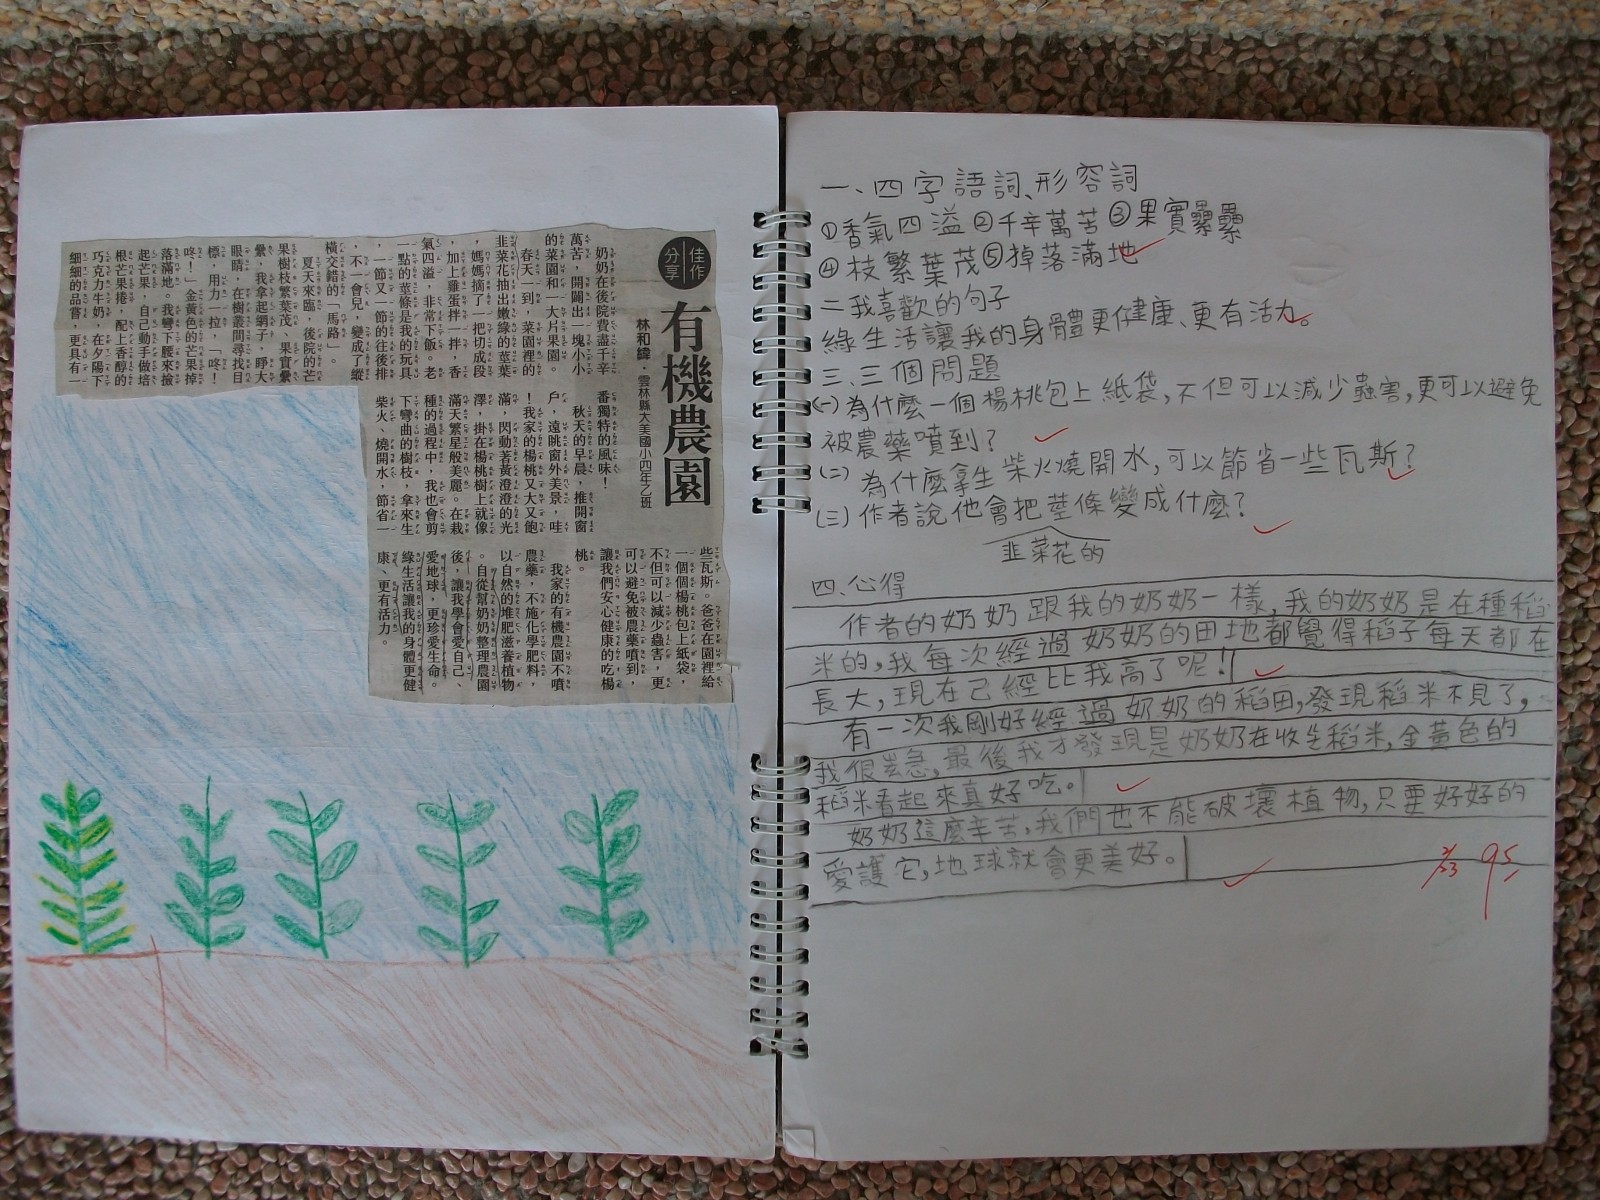 佳作
分享
有機農園
林和緯・雲林縣大美國小四年乙班
奶奶在後院費盡千辛
萬苦，開闢出一塊小小
的菜園和一大片果園。
春天一到，菜園裡的
韭菜花抽出嫩綠的莖葉
，媽媽摘了一把切成段
，加上雞蛋拌一拌，香
氣四溢，非常下飯。老
一點的莖條是我的玩具
，一節又一節的往後排
，不一會兒，變成了縱
橫交錯的「馬路」。
夏天來臨，後院的芒
果樹枝繁葉茂、果實纍
纍，我拿起網子，睜大
眼睛，在樹叢間尋找目
標，用力一拉，「咚！
咚！」金黃色的芒果掉
落滿地。我彎下腰來撿
起芒果，自己動手做培
根芒果捲，配上香醇的
巧克力牛奶，在夕陽下
細細的品嘗，更具有一
番獨特的風味！
秋天的早晨，推開窗
戶，遠眺窗外美景，哇
！我家的楊桃又大又飽
滿，閃動著黃澄澄的光
澤，掛在楊桃樹上就像
滿天繁星般美麗。在栽
種的過程中，我也會剪
下彎曲的樹枝，拿來生
柴火、燒開水，節省一
些瓦斯。爸爸在園裡給
一個個楊桃包上紙袋，
不但可以減少蟲害，更
可以避免被農藥噴到，
讓我們安心健康的吃楊
桃。
我家的有機農園不噴
農藥，不施化學肥料，
以自然的堆肥滋養植物
。自從幫奶奶整理農園
後，讓我學會愛自己、
愛地球，更珍愛生命。
綠生活讓我的身體更健
康、更有活力。
一、四字語詞、形容詞
①香氣四溢②千辛萬苦③果實纍纍
④枝繁葉茂⑤掉落滿地
二我喜歡的句子
綠生活讓我的身體更健康、更有活力。
三、三個問題
(一)為什麼一個楊桃包上紙袋，不但可以減少蟲害，更可以避免
被農藥噴到？
(二)為什麼拿生柴火燒開水，可以節省一些瓦斯？
(三)作者說他會把莖條變成什麼？
韭菜花的
四、心得
作者的奶奶跟我的奶奶一樣，我的奶奶是在種稻
米的，我每次經過奶奶的田地都覺得稻子每天都在
長大，現在已經比我高了呢！
有一次我剛好經過奶奶的稻田，發現稻米不見了，
我很著急，最後我才發現是奶奶在收生稻米，金黃色的
稻米看起來真好吃。
奶奶這麼辛苦，我們也不能破壞植物，只要好好的
愛護它，地球就會更美好。
95